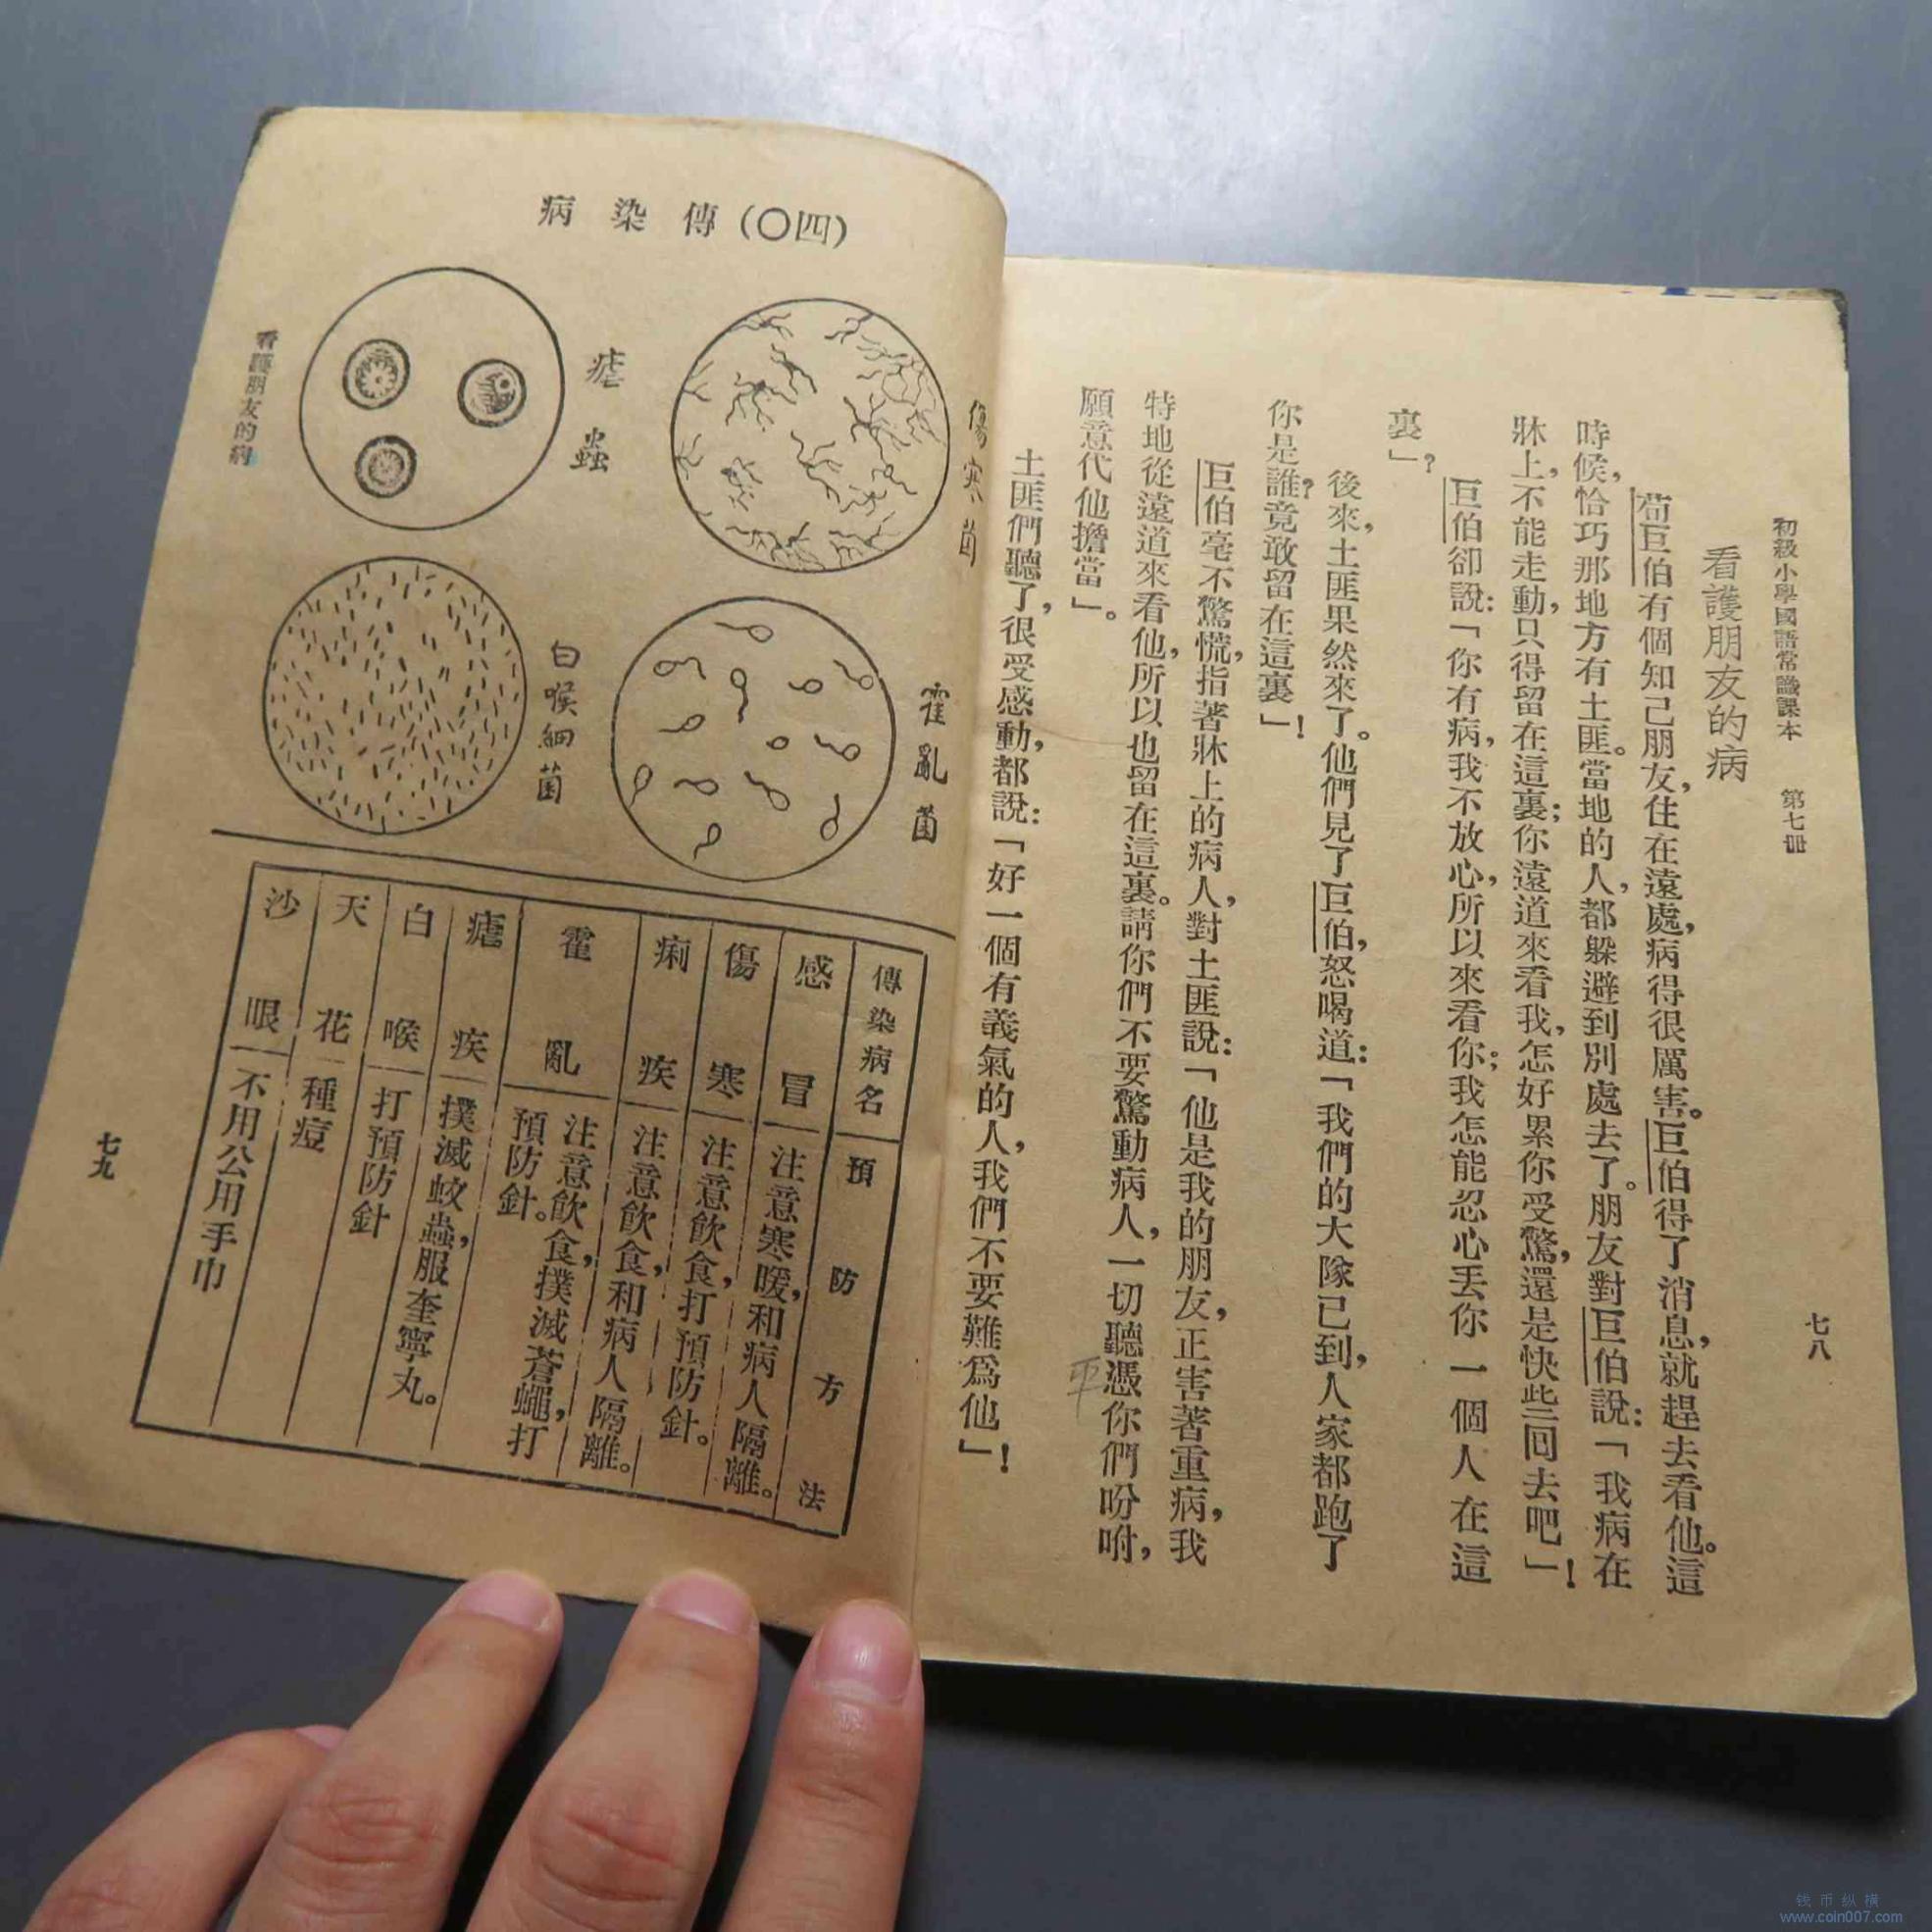 初級小學國語常識課本　第七冊
七八
看護朋友的病
荀巨伯有個知己朋友，住在遠處，病得很厲害。巨伯得了消息，就趕去看他。這
時候，恰巧那地方有土匪。當地的人，都躲避到別處去了。朋友對巨伯說：「我病在
牀上，不能走動，只得留在這裏；你遠道來看我，怎好累你受驚，還是快些回去吧」！
巨伯卻說：「你有病，我不放心，所以來看你；我怎能忍心丟你一個人在這
裏」？
後來，土匪果然來了。他們見了巨伯，怒喝道：「我們的大隊已到，人家都跑了
你是誰？竟敢留在這裏」！
巨伯毫不驚慌，指著牀上的病人，對土匪說：「他是我的朋友，正害著重病，我
特地從遠道來看他，所以也留在這裏。請你們不要驚動病人，一切聽憑你們吩咐，
願意代他擔當」。
土匪們聽了，很受感動，都說：「好一個有義氣的人，我們不要難爲他」！
(四〇)傳染病
傷寒菌
瘧蟲
霍亂菌
白喉細菌
傳染病名　預防方法
感冒　注意寒暖，和病人隔離。
傷寒　注意飲食，打預防針。
痢疾　注意飲食，和病人隔離。
霍亂　注意飲食，撲滅蒼蠅，打
預防針。
瘧疾　撲滅蚊蟲，服奎寧丸。
白喉　打預防針
天花　種痘
沙眼　不用公用手巾
看護朋友的病
七九
钱币纵横
www.coin007.com